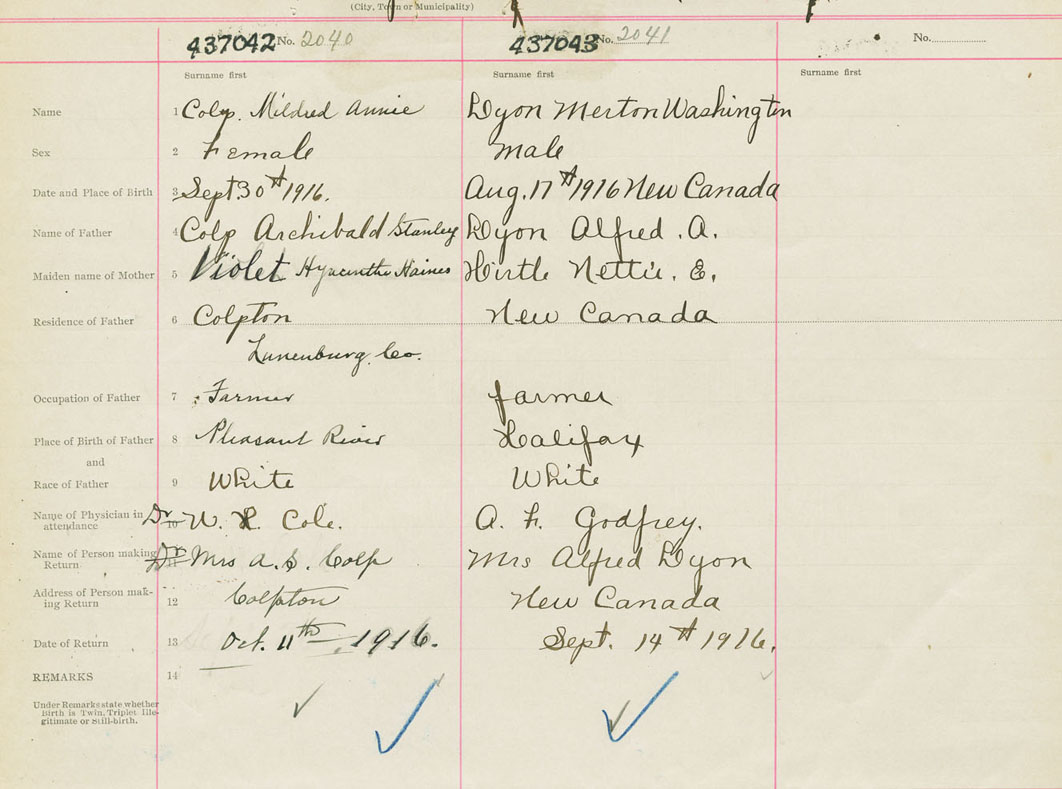 (City, Town or Municipality)
437042 No. 2040 437043 No. 2041 No.
Surname first Surname first Surname first
Name 1 Colp. Mildred Annie Dyon Merton Washington
Sex 2 Female Male
Date and Place of Birth 3 Sept. 30th 1916. Aug. 17th 1916 New Canada
Name of Father 4 Colp Archibald Stanley Dyon Alfred . A.
Maiden name of Mother 5 Violet Hyacinthe Haines Hirtle Nettie. E.
Residence of Father 6 Colpton New Canada
Lunenburg, Co.
Occupation of Father 7 Farmer farmer
Place of Birth of Father 8 Pleasant River Halifax
and
Race of Father 9 White White
Name of Physician in
attendance 10 Dr W. R. Cole. A. F. Godfrey.
Name of Person making
Return Dr Mrs A. S. Colp Mrs Alfred Dyon
Address of Person mak-
ing Return 12 Colpton New Canada
Date of Return 13 Oct. 11th 1916. Sept. 14th 1916.
REMARKS 14
Under Remarks state whether
Birth is Twin, Triplet, Ille-
gitimate or Still-birth.